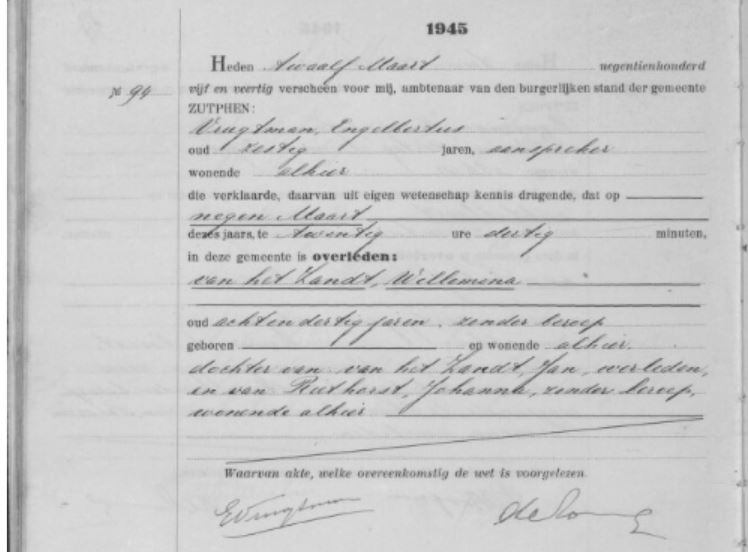 1945
Heden twaalf Maart negentienhonderd
№ 94
vijf en veertig verscheen voor mij, ambtenaar van den burgerlijken stand der gemeente
ZUTPHEN:
Vrugtman, Engelbertus
oud zestig jaren, aanspreker
wonende alhier
die verklaarde, daarvan uit eigen wetenschap kennis dragende, dat op
negen Maart
dezes jaars, te twintig ure dertig minuten,
in deze gemeente is overleden:
van het Landt, Willemina
oud achtendertig jaren, zonder beroep
geboren en wonende alhier.
dochter van van het Landt, Jan, overleden,
en van Riethorst, Johanna, zonder beroep,
wonende alhier
Waarvan akte, welke overeenkomstig de wet is voorgelezen.
EVrugtman